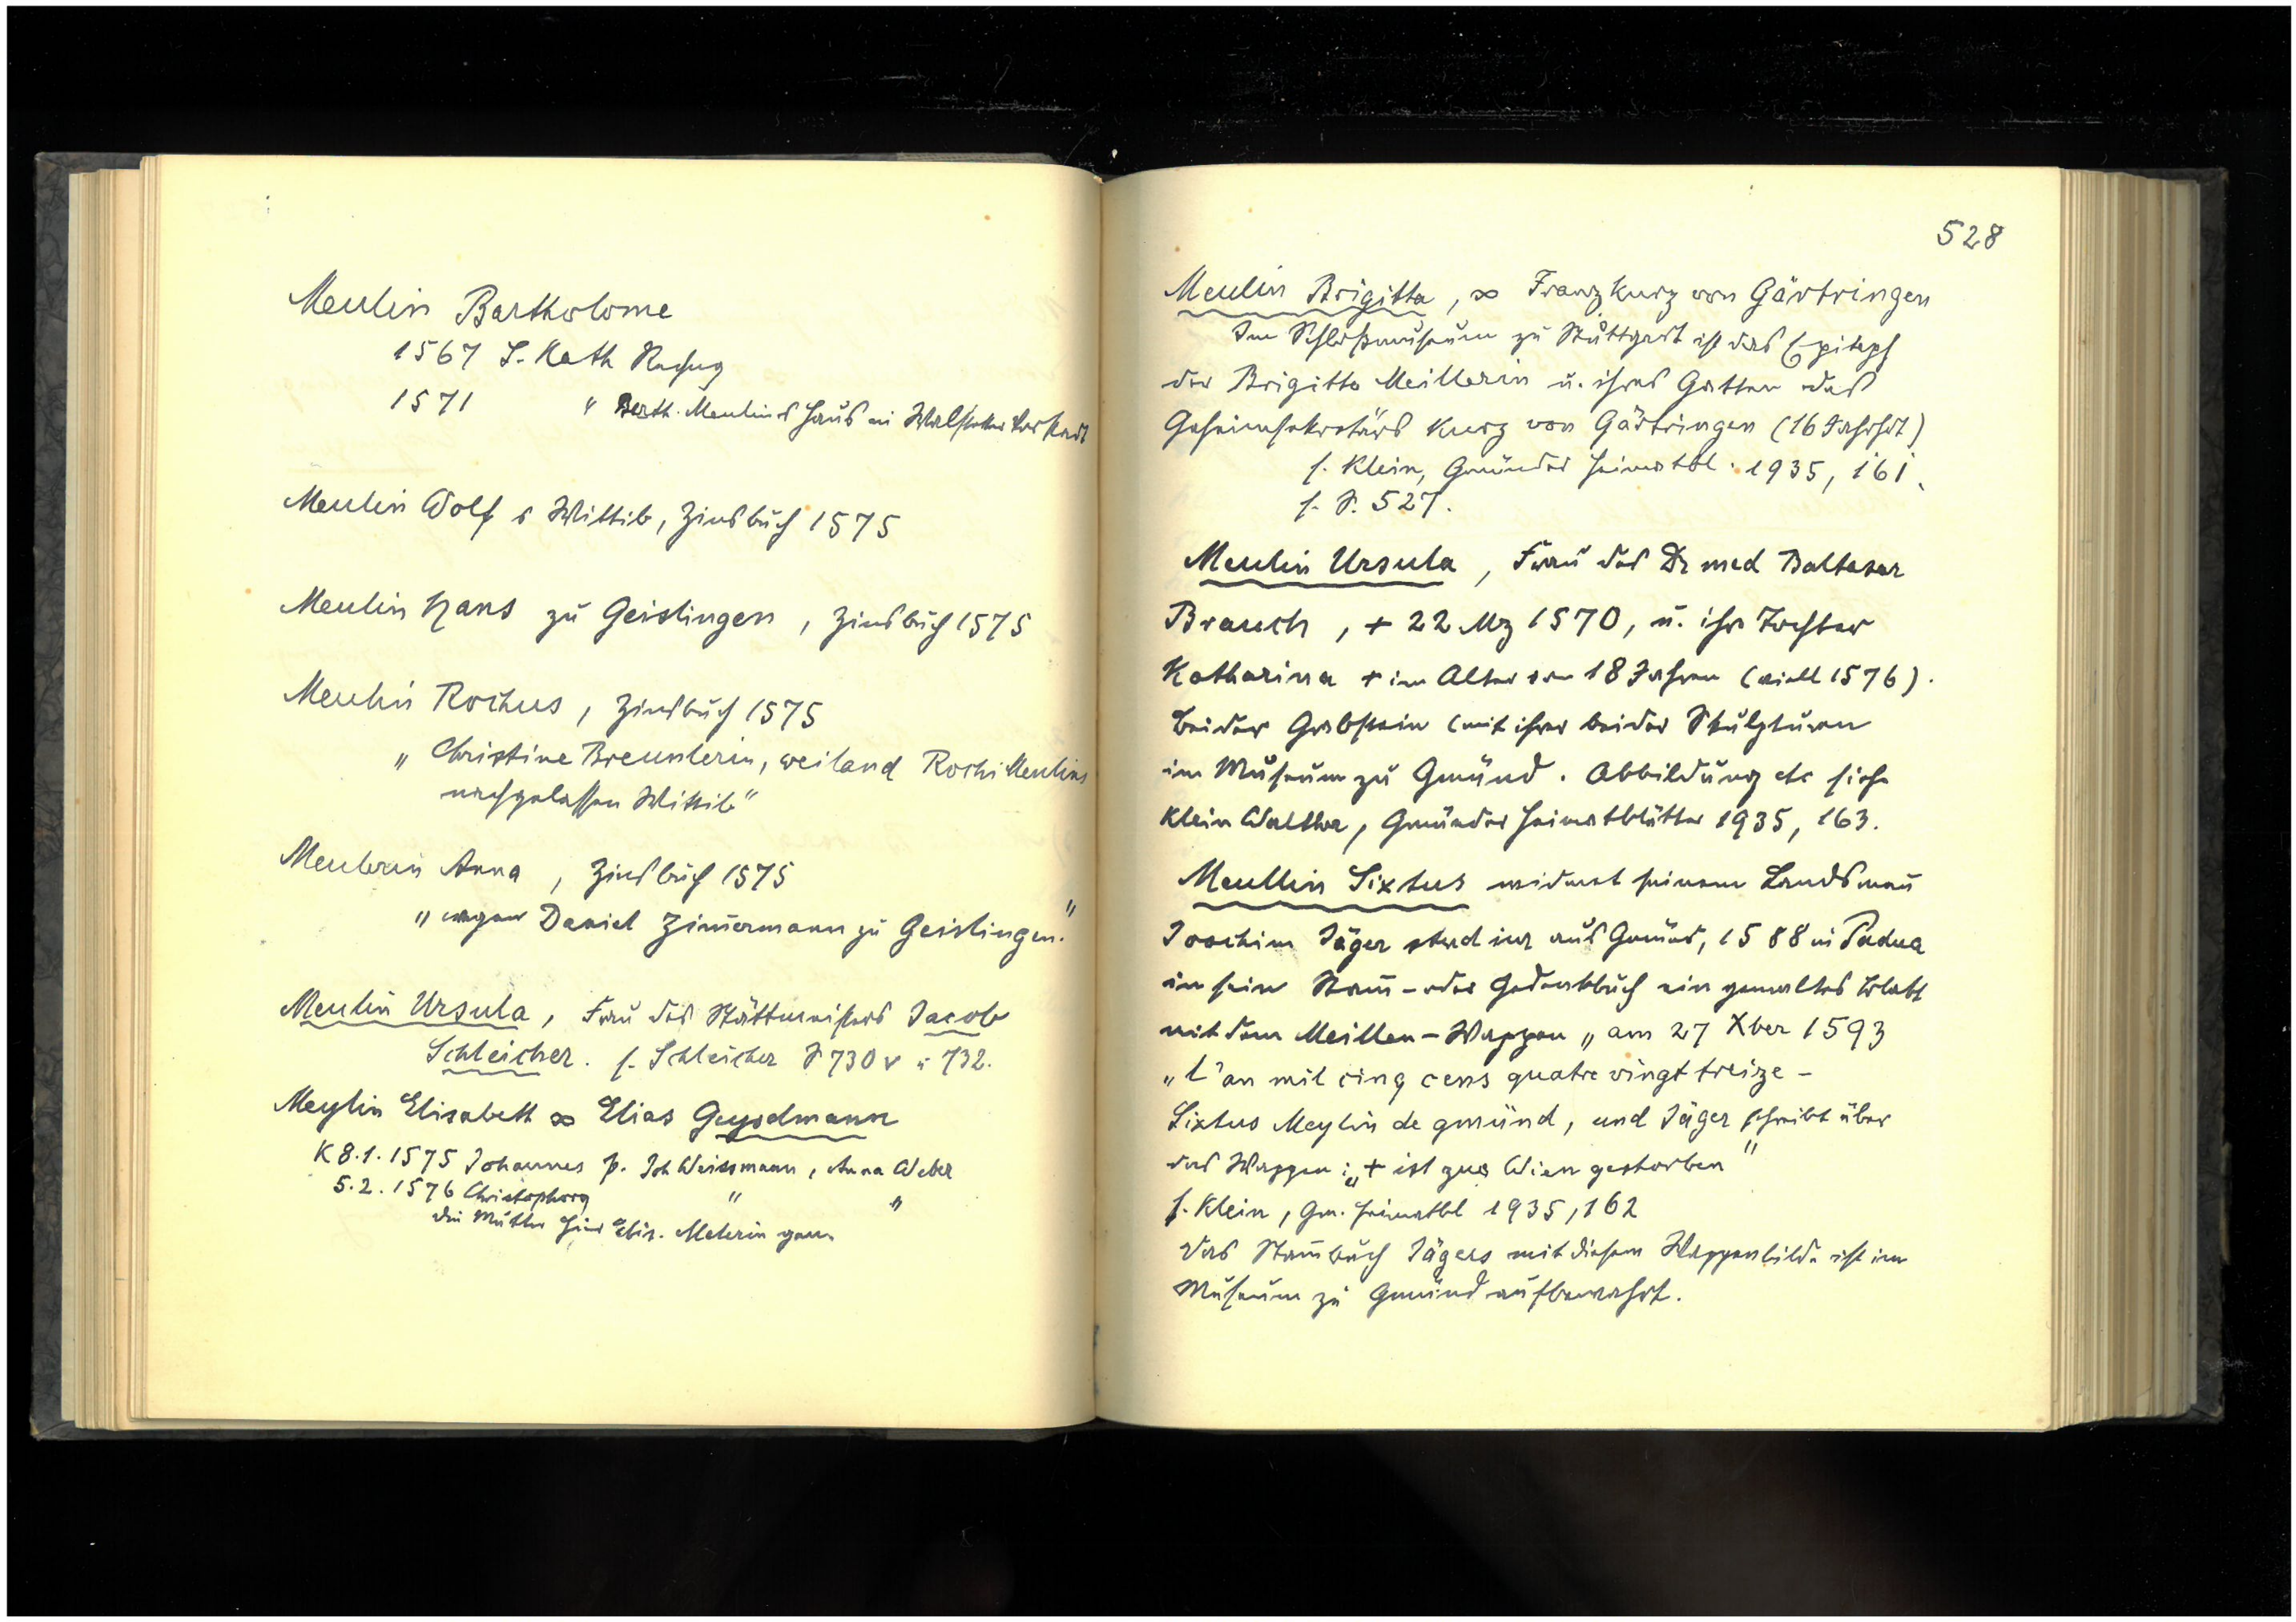 Meulin Bartholome
1567 S. Kath Rechng
1571 " Berth. Meulins Haus in Walstetter Vorstadt
Meulin Wolf s Wittib, Zinsbuch 1575
Meulin Hans zu Geislingen, Zinsbuch 1575
Meulin Rochus, Zinsbuch 1575
„Christine Breunlerin, weiland Rochi Meulins
nachgelassen Wittib"
Meulerin Anna, Zinsbuch 1575
„wegen Daniel Zimermann zu Geislingen."
Meulin Ursula, Frau des Stättmeisters Jacob
Schleicher. s. Schleicher S 730 v u 732.
Meylin Elisabeth ∞ Elias Geysdmann
K 8.1.1575 Johannes p. Joh Weissmann, Anna Weber
5.2.1576 Christophorg " "
die Mutter hier Elis. Melerin gen.
528
Meulin Brigitta, ∞ Franz Kurz von Gärtringen
Im Schloßmuseum zu Stuttgart ist das Epitaph
der Brigitta Meillerin u. ihres Gatten des
Geheimsekretärs Kurz von Gärtringen (16 Jahrhdt)
s. Klein, Gmünder Heimatbl. 1935, 161.
s. S. 527.
Meulin Ursula, Frau des Dr med Baltasar
Brauch, + 22 Mz 1570, u. ihre Tochter
Katharina + im Alter von 18 Jahren (viell 1576).
Beider Grabstein (mit ihrer beider Skulpturen
im Museum zu Gmünd. Abbildung etc siehe
Klein Walther, Gmünder Heimatblätter 1935, 163.
Meullin Sixtus widmet seinem Landsman
Joachim Jäger stud iur aus Gmünd, 1588 in Padua
in sein Stam- oder Gedenkbuch ein gemaltes Blatt
mit dem Meillen-Wappen „am 27 Xber 1593
„L'an mil cinq cens quatre vingt treize -
Sixtus Meylin de gmünd, und Jäger schreibt über
das Wappen: „+ ist zue Wien gestorben"
s. Klein, Gm. Heimatbl 1935, 162
Das Stambuch Jägers mit diesem Wappenbilde ist im
Museum zu Gmünd aufbewahrt.